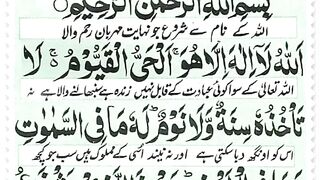 بِسْمِ اللّٰهِ الرَّحْمٰنِ الرَّحِيْمِ
اللہ کے نام سے شروع جو نہایت مہربان رحم والا
اَللّٰهُ لَاۤ اِلٰهَ اِلَّا هُوَۚ اَلْحَیُّ الْقَیُّوْمُ ۚ لَا
اللہ تعالیٰ کے سوا کوئی عبادت کے قابل نہیں زندہ ہے سنبھالنے والا ہے نہ
تَاْخُذُهٗ سِنَةٌ وَّلَا نَوْمٌ ؕ لَهٗ مَا فِی السَّمٰوٰتِ
اس کو اونگھ دبا سکتی ہے اور نہ نیند اسی کے مملوک ہیں سب جو کچھ